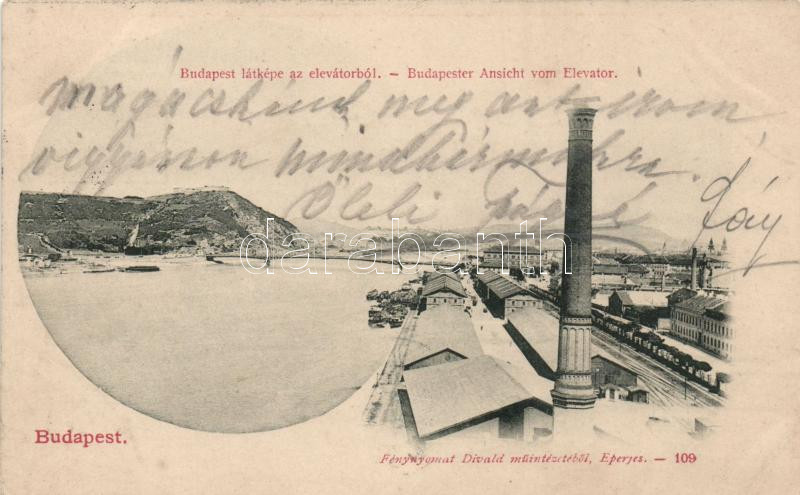 Budapest látképe az elevátorból. – Budapester Ansicht vom Elevator.
meg azt írom
vigyázzon mindhármukra.
Öleli
darabanth
Budapest.
Fénynyomat Divald műintézetéből, Eperjes. – 109